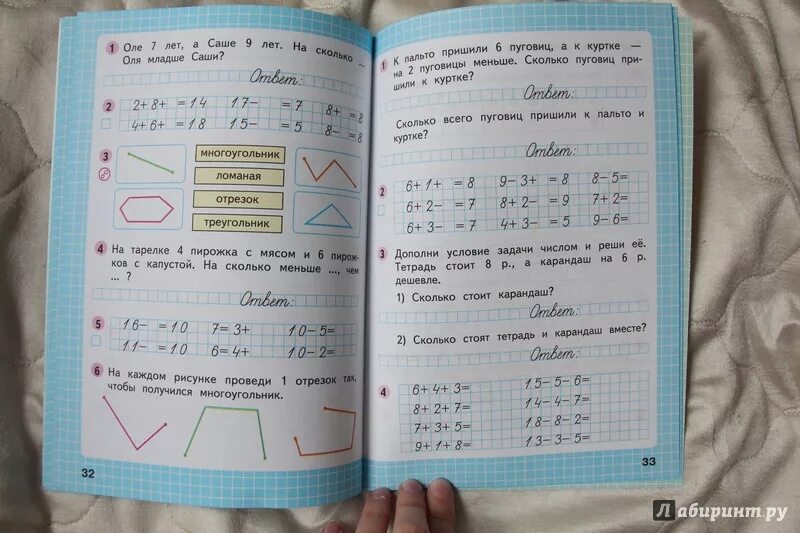 1 Оле 7 лет, а Саше 9 лет. На сколько ...
Оля младше Саши?
Ответ:
2
2+8+ =14 17- =7 8+ =8
4+6+ =18 15- =5 8- =8
3
многоугольник
ломаная
отрезок
треугольник
4 На тарелке 4 пирожка с мясом и 6 пирож-
ков с капустой. На сколько меньше ..., чем
... ?
Ответ:
5
16- =10 7=3+ 10-5=
11- =10 6=4+ 10-2=
6 На каждом рисунке проведи 1 отрезок так,
чтобы получился многоугольник.
32
1 К пальто пришили 6 пуговиц, а к куртке —
на 2 пуговицы меньше. Сколько пуговиц при-
шили к куртке?
Ответ:
Сколько всего пуговиц пришили к пальто и
куртке?
Ответ:
2
6+1+ =8 9-3+ =8 8-5=
6+2- =7 8+2- =9 7+2=
6+3- =7 4+3- =5 9-6=
3 Дополни условие задачи числом и реши её.
Тетрадь стоит 8 р., а карандаш на 6 р.
дешевле.
1) Сколько стоит карандаш?
Ответ:
2) Сколько стоят тетрадь и карандаш вместе?
Ответ:
4
6+4+3= 15-5-6=
8+2+7= 14-4-7=
7+3+5= 18-8-2=
9+1+8= 13-3-5=
33
Лабиринт.ру